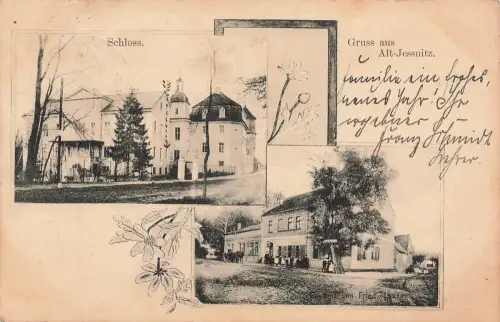 Schloss.
Gruss aus
Alt-Jessnitz.
Familie ein frohes,
neues Jahr! Ihr
ergebener
Franz Schmidt
Lehrer.